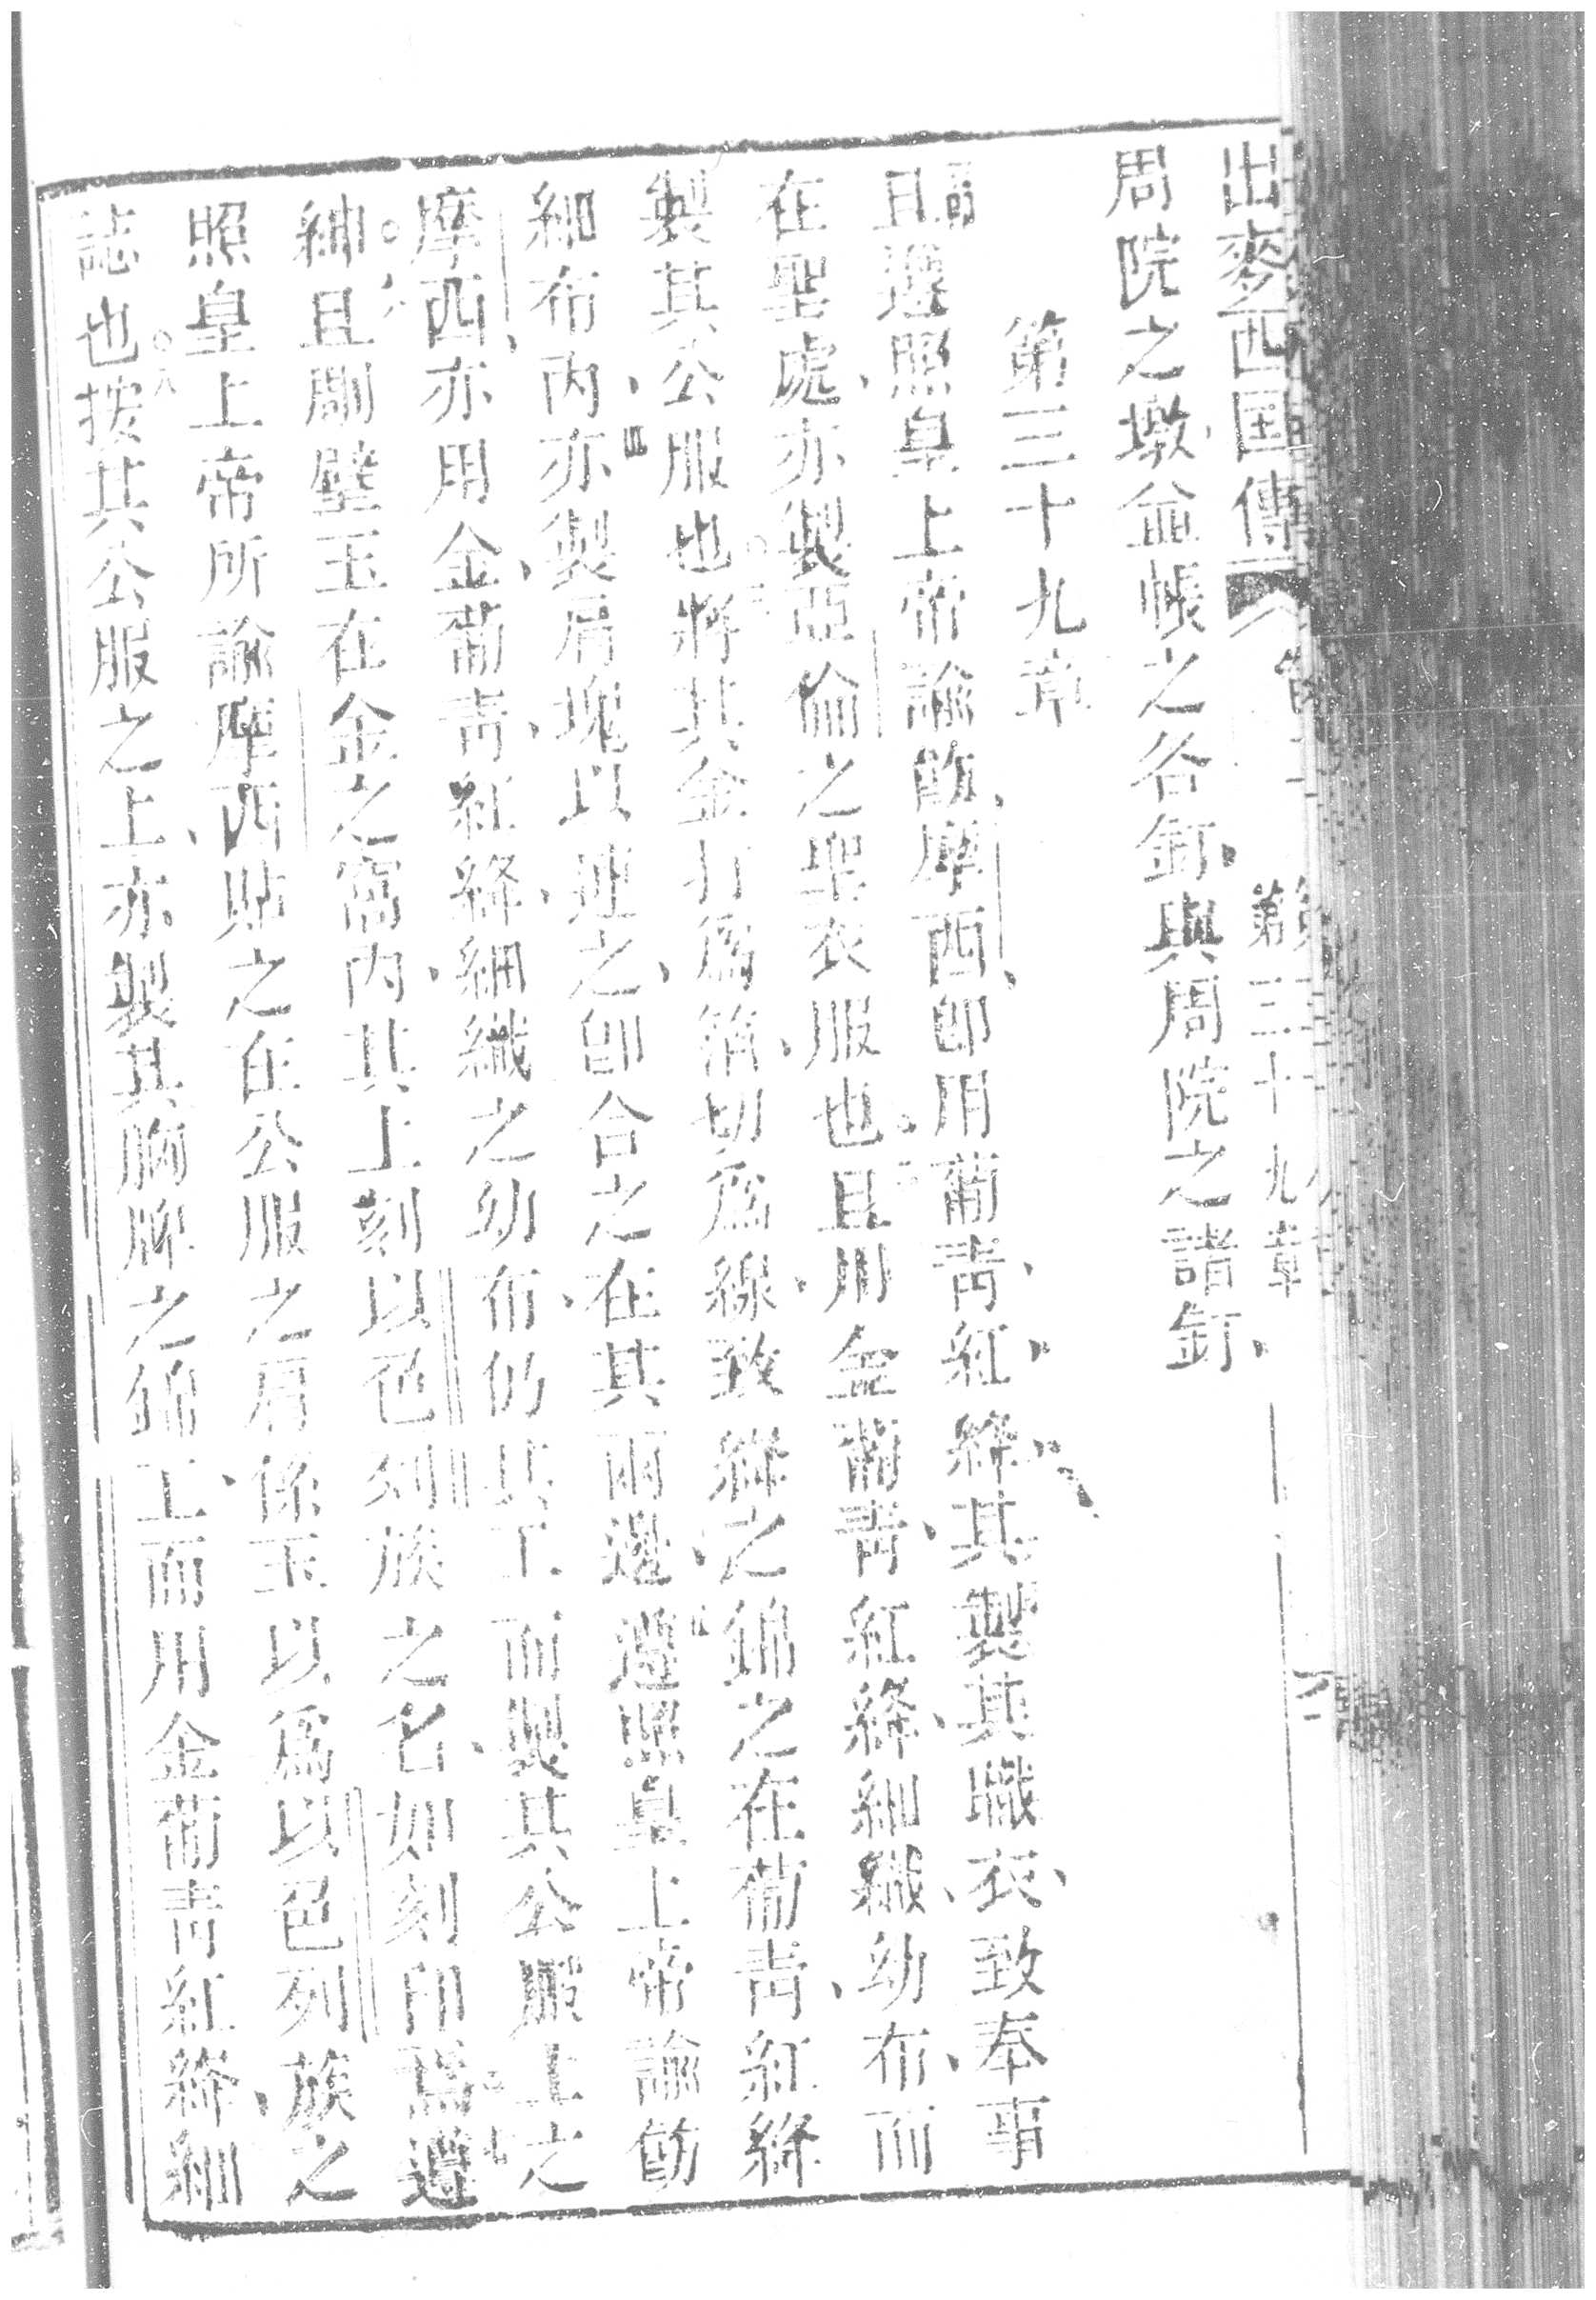 出麥西国傳 第三十九章
周院之墩並帳之各釘與周院之諸釘
第三十九章
一節 且遵照皇上帝諭飭摩西卽用葡青紅絳其製其職衣致奉事
在聖處亦製亞倫之聖衣服也二且用金葡青紅絳細織幼布而
製其公服也三將其金打爲箔切爲線致絳之錦之在葡青紅絳
細布内四亦製肩塊以連之卽合之在其兩邊五遵照皇上帝諭飭
摩西亦用金葡青紅絳細織之幼布仍其工而製其公服上之
紳六且剛壁玉在金之窩内其上刻以色列族之名如刻印爲七遵
照皇上帝所諭摩西貼之在公服之肩係玉以爲以色列族之
誌也八按其公服之上亦製其胸牌之錦工而用金葡青紅絳細